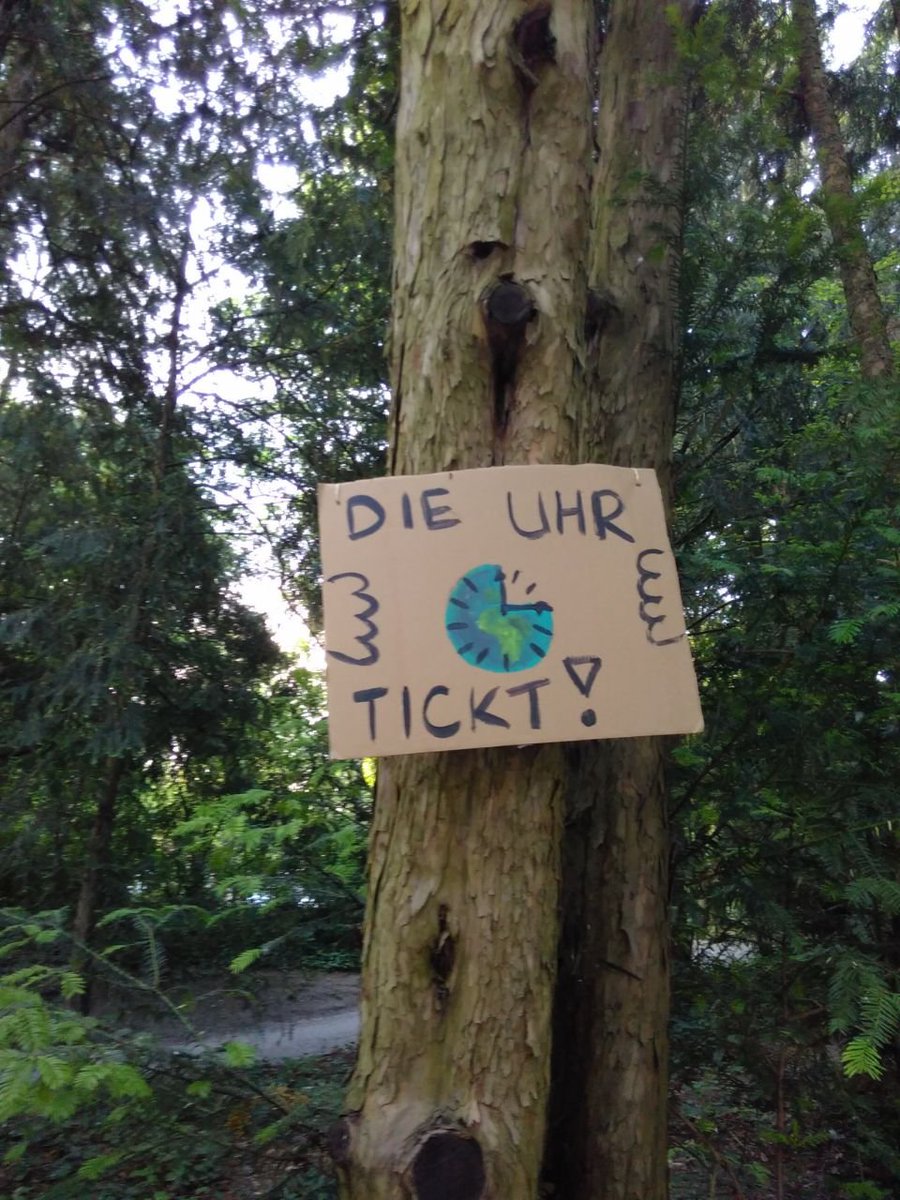 DIE UHR
TICKT!